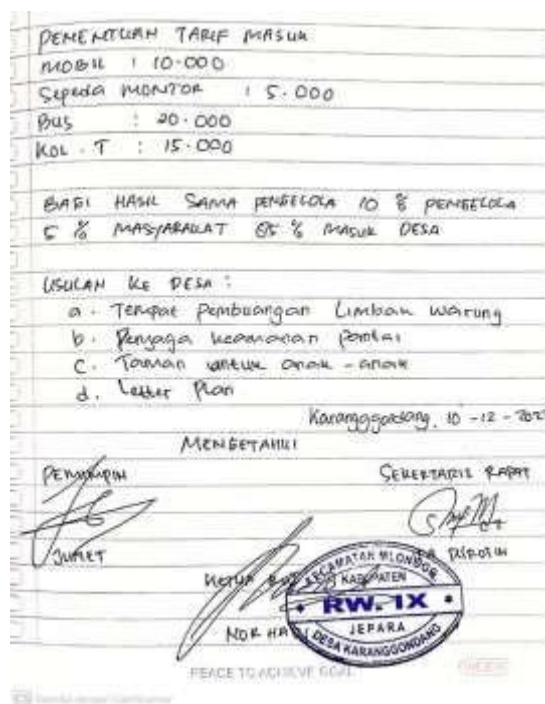 PENENTUAN TARIF MASUK
MOBIL : 10.000
Sepeda MONTOR : 5.000
BUS : 20.000
KOL . T : 15.000
BAGI HASIL SAMA PENGELOLA 10 % PENGELOLA
5 % MASYARAKAT 85 % MASUK DESA
USULAN KE DESA :
a. Tempat Pembuangan Limbah Warung
b. Penjaga keamanan Pantai
c. Taman untuk anak - anak
d. Letter Plan
Karanggondang, 10 - 12 -
MENGETAHUI
PEMIMPIN SEKERTARIS RAPAT
JUMET
KETUA
NOR
KECAMATAN MLONGGO
KABUPATEN
RW. IX
JEPARA
DESA KARANGGONDANG
PEACE TO ACHIEVE GOAL